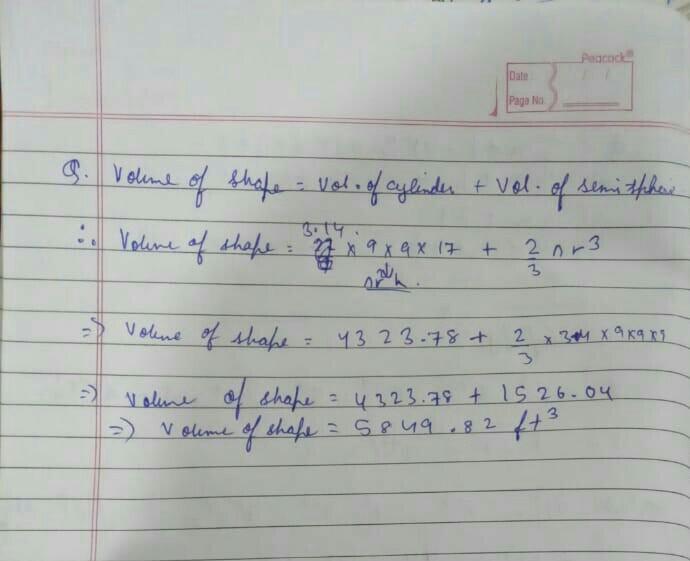 Peacock®
Date / /
Page No.
Q. Volume of shape = Vol. of cylinder + Vol. of semi-sphere
3.14
∴ Volume of shape = × 9 × 9 × 17 + 2/3 πr³
πr²h.
⇒ Volume of shape = 4323.78 + 2/3 × 3.14 × 9×9×9
⇒ Volume of shape = 4323.78 + 1526.04
⇒ Volume of shape = 5849.82 ft³